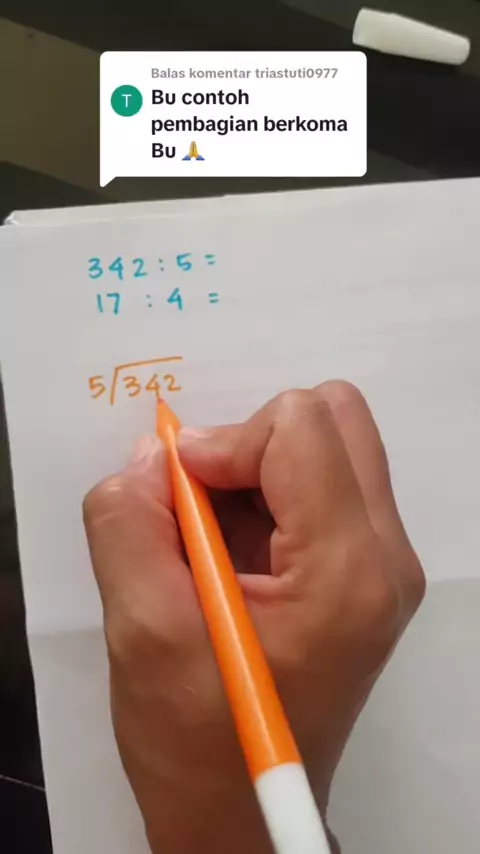 Balas komentar triastuti0977
T
Bu contoh
pembagian berkoma
Bu 🙏
342 : 5 =
17 : 4 =
5 342